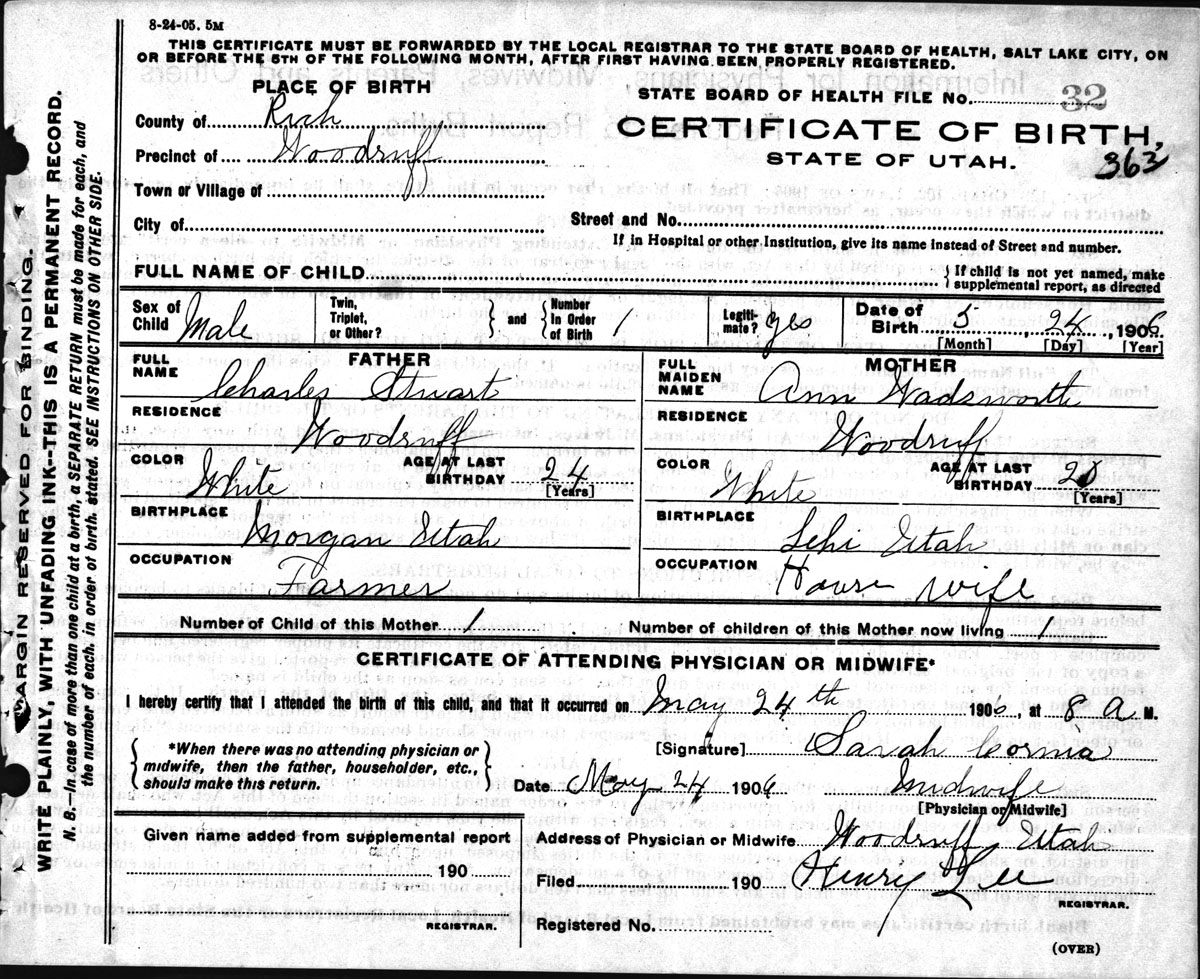 8-24-05. 5M
THIS CERTIFICATE MUST BE FORWARDED BY THE LOCAL REGISTRAR TO THE STATE BOARD OF HEALTH, SALT LAKE CITY, ON
OR BEFORE THE 5TH OF THE FOLLOWING MONTH, AFTER FIRST HAVING BEEN PROPERLY REGISTERED.
PLACE OF BIRTH
STATE BOARD OF HEALTH FILE NO. 32
County of Rich
CERTIFICATE OF BIRTH,
Precinct of Woodruff
STATE OF UTAH.
363
Town or Village of
City of
Street and No.
If in Hospital or other Institution, give its name instead of Street and number.
FULL NAME OF CHILD
{If child is not yet named, make
supplemental report, as directed
Sex of Child Male
Twin, Triplet, or Other?
{ and { Number In Order of Birth 1
Legiti-mate? yes
Date of Birth 5, 24, 1906
[Month] [Day] [Year]
FATHER
FULL NAME Charles Stuart
RESIDENCE
Woodruff
COLOR White
AGE AT LAST BIRTHDAY 24
[Years]
BIRTHPLACE Morgan Utah
OCCUPATION
Farmer
MOTHER
FULL MAIDEN NAME Ann Wadsworth
RESIDENCE
Woodruff
COLOR White
AGE AT LAST BIRTHDAY
[Years]
BIRTHPLACE
Lehi Utah
OCCUPATION House wife
Number of Child of this Mother 1
Number of children of this Mother now living 1
CERTIFICATE OF ATTENDING PHYSICIAN OR MIDWIFE*
I hereby certify that I attended the birth of this child, and that it occurred on May 24th 1906, at 8 A M.
{*When there was no attending physician or
midwife, then the father, householder, etc.,
should make this return.}
[Signature] Sarah
Date May 24 1906 Midwife
[Physician or Midwife]
Given name added from supplemental report
190
REGISTRAR.
Address of Physician or Midwife Woodruff Utah
Filed 190 Henry Lee
REGISTRAR.
Registered No.
(OVER)
MARGIN RESERVED FOR BINDING.
WRITE PLAINLY, WITH UNFADING INK--THIS IS A PERMANENT RECORD.
N. B.--In case of more than one child at a birth, a SEPARATE RETURN must be made for each, and
the number of each, in order of birth, stated. SEE INSTRUCTIONS ON OTHER SIDE.